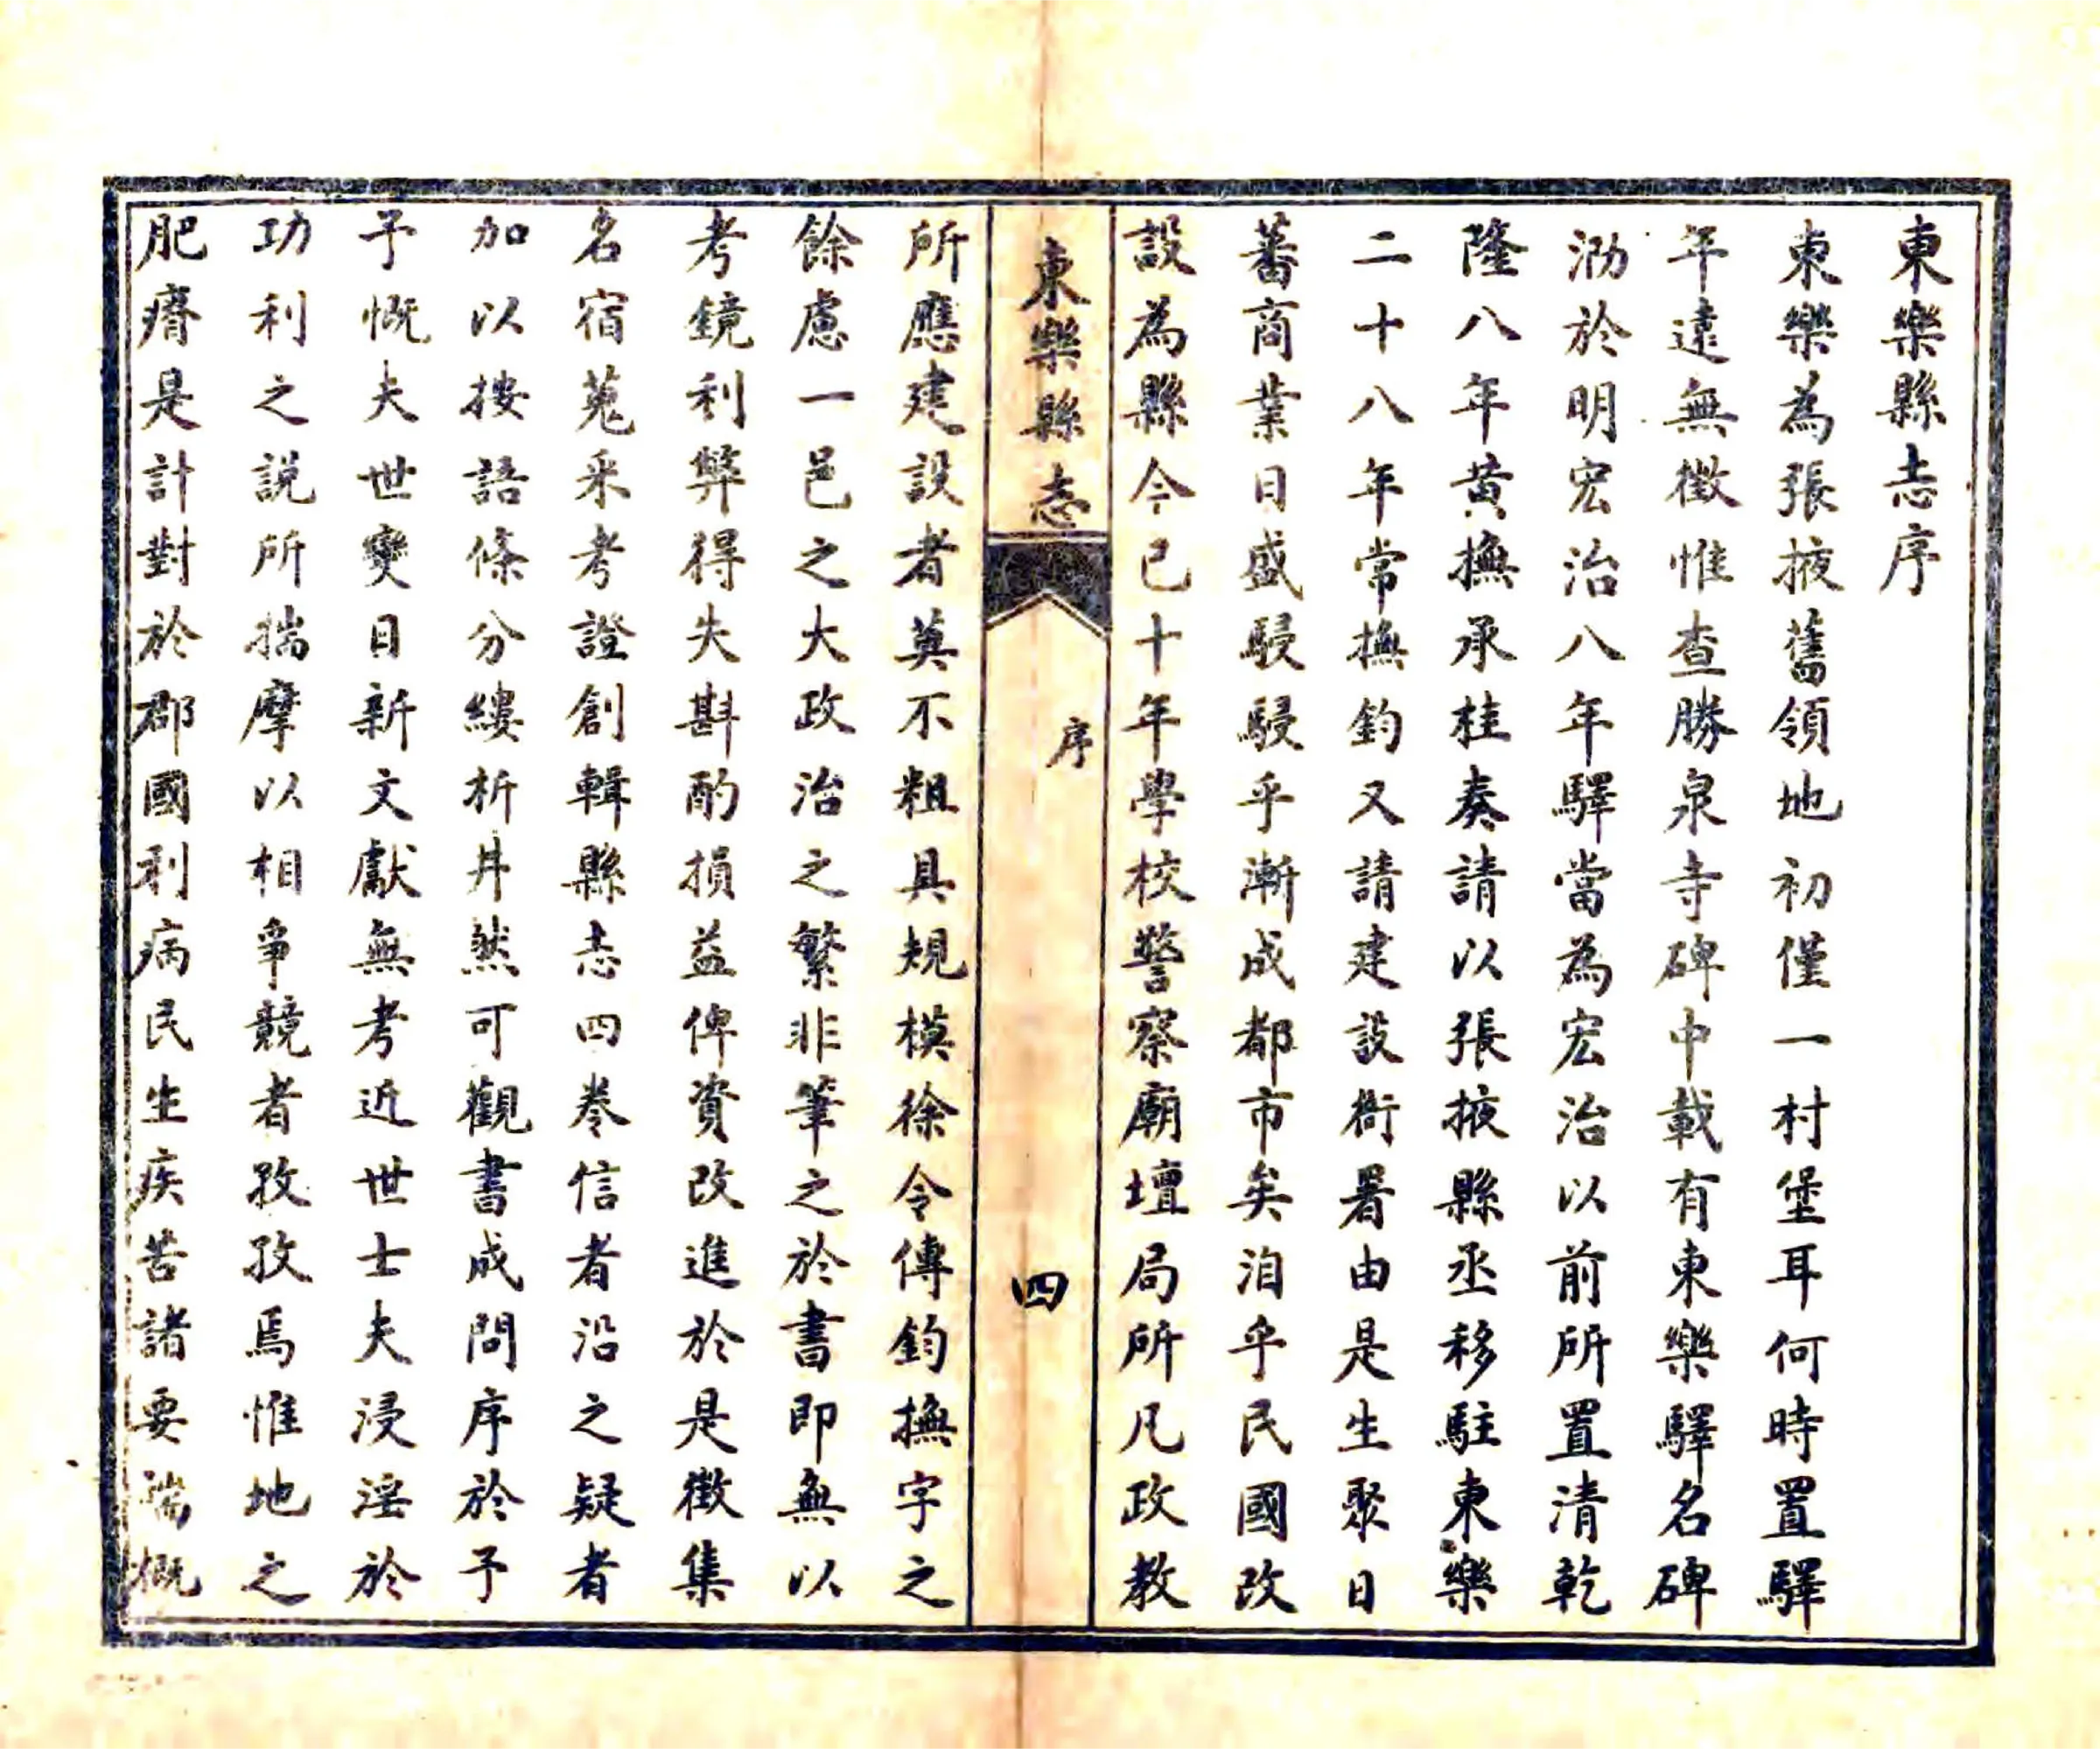 東樂縣志序
東樂為張掖舊領地初僅一村堡耳何時置驛
年遠無徵惟查勝泉寺碑中載有東樂驛名碑
泐於明宏治八年驛當為宏治以前所置清乾
隆八年黃撫承桂奏請以張掖縣丞移駐東樂
二十八年常撫鈞又請建設衙署由是生聚日
蕃商業日盛駸駸乎漸成都市矣洎乎民國改
設為縣今已十年學校警察廟壇局所凡政教
東樂縣志
序
四
所應建設者莫不粗具規模徐令傳鈞撫字之
餘慮一邑之大政治之繁非筆之於書即無以
考鏡利弊得失斟酌損益俾資改進於是徵集
名宿蒐采考證創輯縣志四卷信者沿之疑者
加以按語條分縷析井然可觀書成問序於予
予慨夫世變日新文獻無考近世士夫浸淫於
功利之說所揣摩以相爭競者孜孜焉惟地之
肥瘠是計對於郡國利病民生疾苦諸要端概